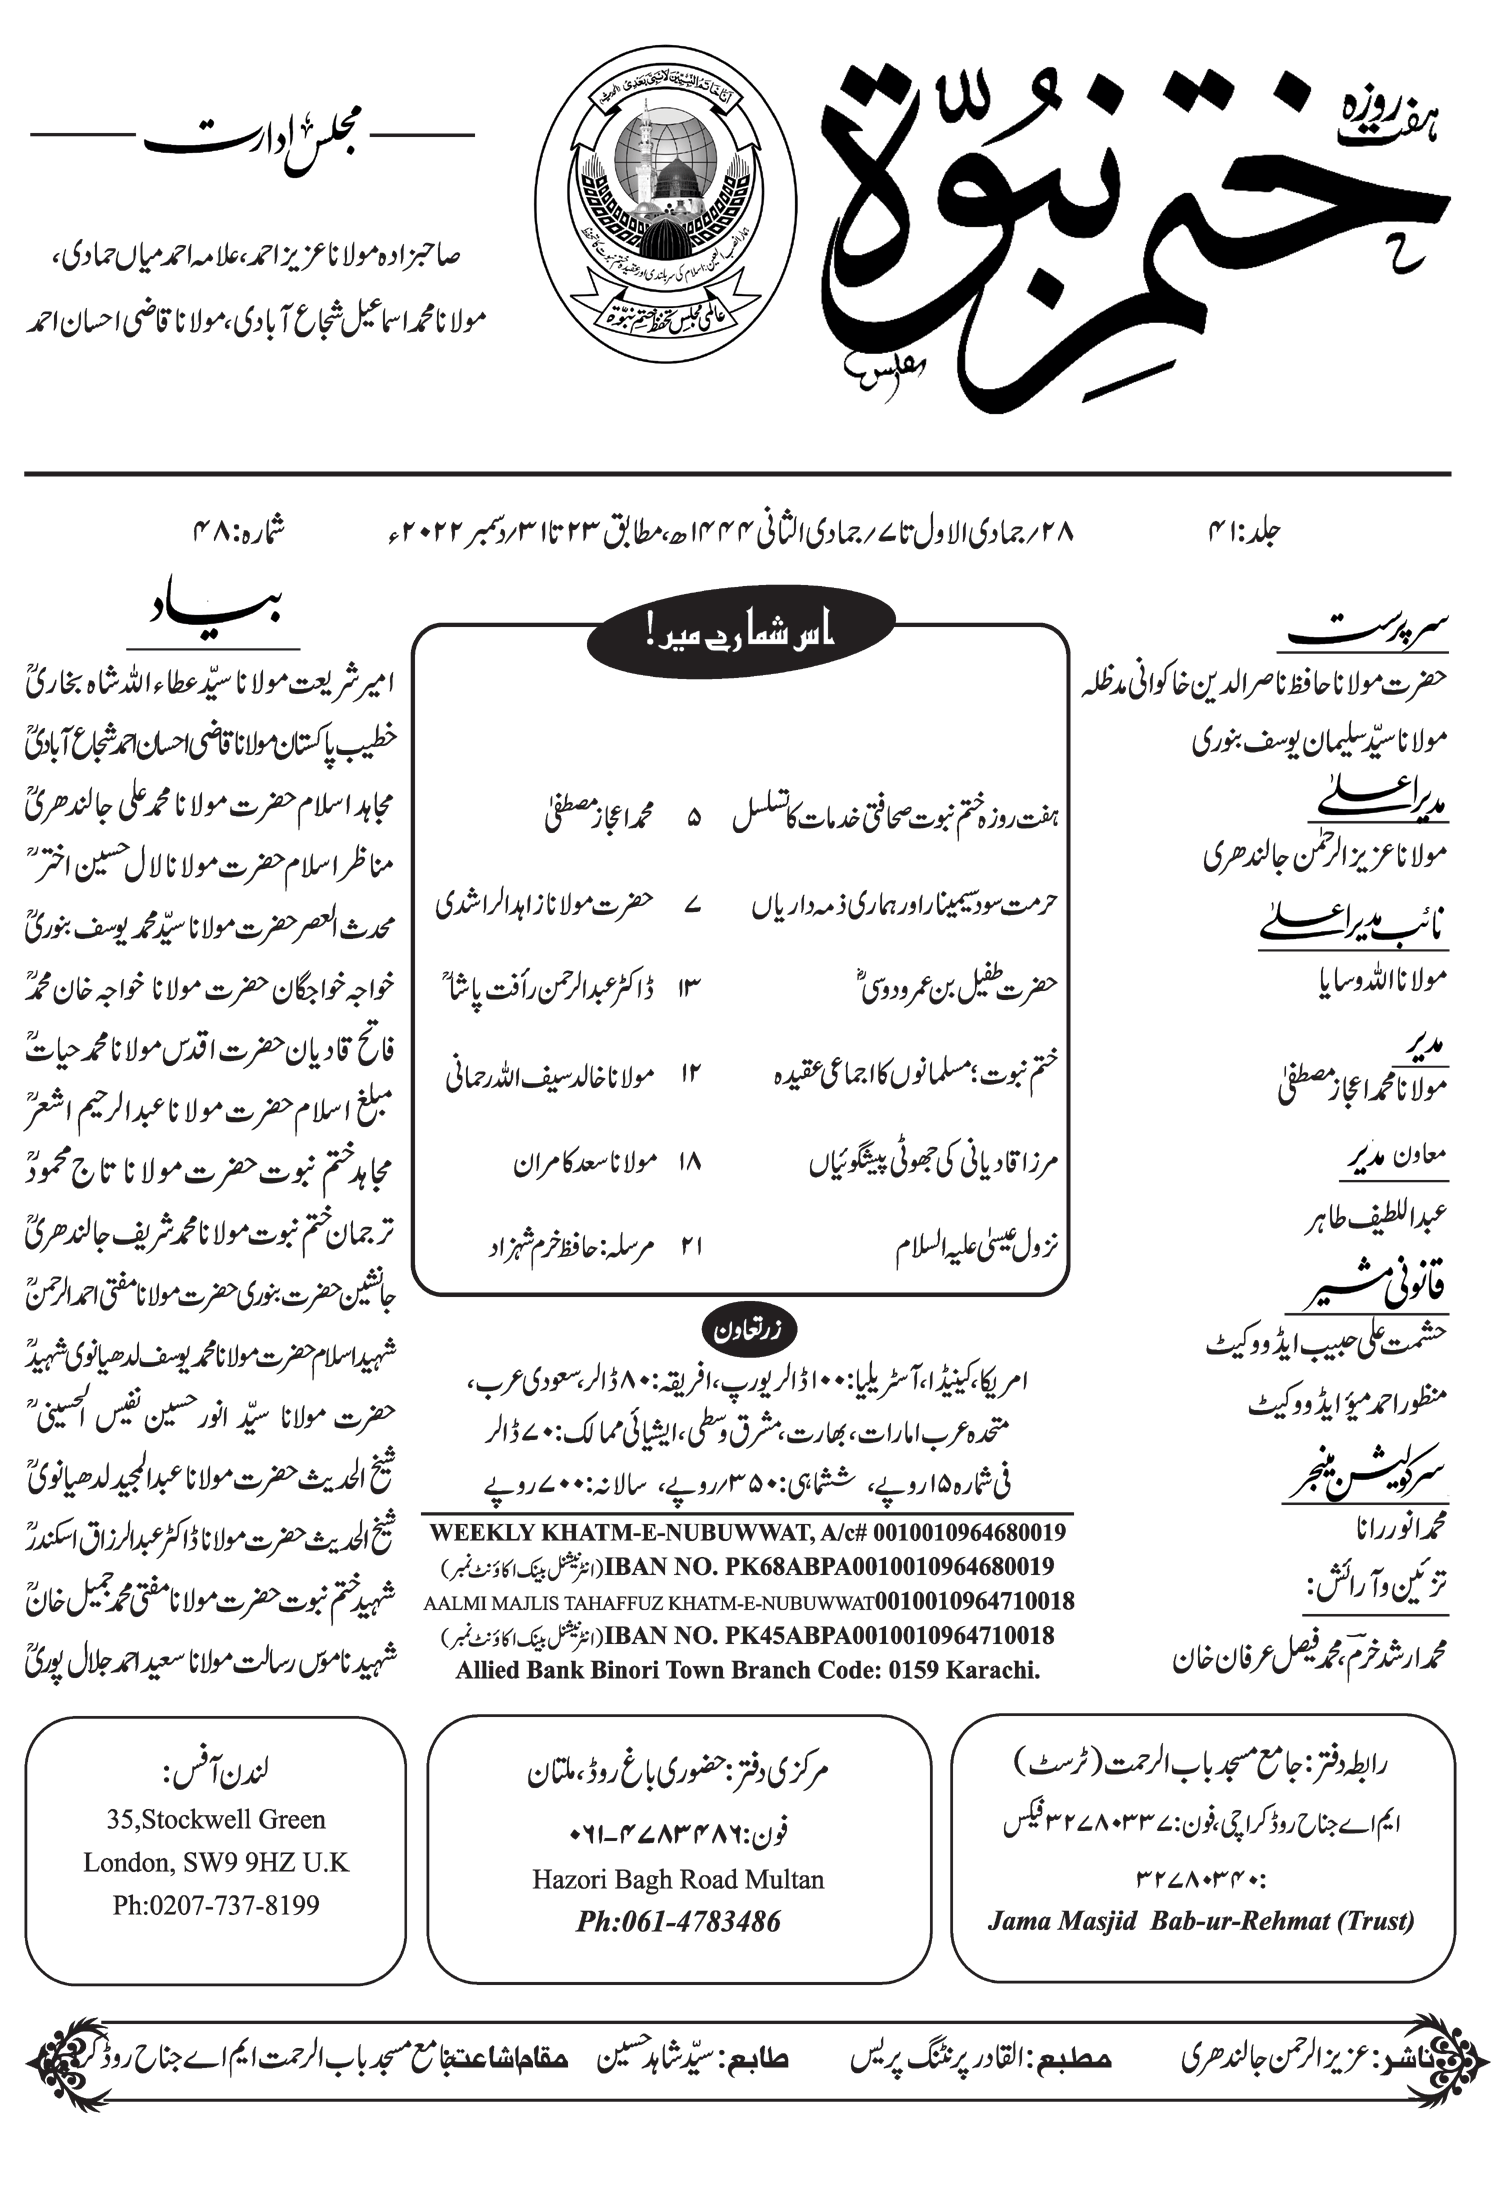 ہفت روزہ
ختمِ نبوّۃ
اَنَا خَاتَمُ النَّبِیّٖنَ لَا نَبِیَّ بَعْدِی
عالمی مجلس تحفظ ختمِ نبوّۃ
مجلس ادارت
صاحبزادہ مولانا عزیز احمد، علامہ احمد میاں حمادی،
مولانا محمد اسماعیل شجاع آبادی، مولانا قاضی احسان احمد
جلد: ۴۱
۲۸/ جمادی الاول تا ۷/ جمادی الثانی ۱۴۴۴ھ، مطابق ۲۳ تا ۳۱/ دسمبر ۲۰۲۲ء
شمارہ: ۴۸
سرپرست
حضرت مولانا حافظ ناصر الدین خاکوانی مدظلہ
مولانا سیّد سلیمان یوسف بنوری
مدیر اعلیٰ
مولانا عزیز الرحمٰن جالندھری
نائب مدیر اعلیٰ
مولانا اللہ وسایا
مدیر
مولانا محمد اعجاز مصطفیٰ
معاون مدیر
عبداللطیف طاہر
قانونی مشیر
حشمت علی حبیب ایڈووکیٹ
منظور احمد میؤ ایڈووکیٹ
سرکولیشن مینجر
محمد انور رانا
تزئین و آرائش:
محمد ارشد خرم، محمد فیصل عرفان خان
اس شمارے میں!
ہفت روزہ ختم نبوت صحافتی خدمات کا تسلسل ۵ محمد اعجاز مصطفیٰ
حرمت سود سیمینار اور ہماری ذمہ داریاں ۷ حضرت مولانا زاہد الراشدی
حضرت طفیل بن عمرو دوسیؓ ۱۳ ڈاکٹر عبدالرحمن رأفت پاشاؒ
ختم نبوت؛ مسلمانوں کا اجماعی عقیدہ ۱۲ مولانا خالد سیف اللہ رحمانی
مرزا قادیانی کی جھوٹی پیشگوئیاں ۱۸ مولانا سعد کامران
نزول عیسیٰ علیہ السلام ۲۱ مرسلہ: حافظ خرم شہزاد
زر تعاون
امریکا، کینیڈا، آسٹریلیا: ۱۰۰ ڈالر یورپ، افریقہ: ۸۰ ڈالر، سعودی عرب،
متحدہ عرب امارات، بھارت، مشرق وسطی، ایشیائی ممالک: ۷۰ ڈالر
فی شمارہ ۱۵ روپے، ششماہی: ۳۵۰/ روپے، سالانہ: ۷۰۰ روپے
WEEKLY KHATM-E-NUBUWWAT, A/c# 0010010964680019
IBAN NO. PK68ABPA0010010964680019 (انٹرنیشنل بینک اکاؤنٹ نمبر)
AALMI MAJLIS TAHAFFUZ KHATM-E-NUBUWWAT0010010964710018
IBAN NO. PK45ABPA0010010964710018 (انٹرنیشنل بینک اکاؤنٹ نمبر)
Allied Bank Binori Town Branch Code: 0159 Karachi.
بیاد
امیر شریعت مولانا سیّد عطاء اللہ شاہ بخاریؒ
خطیب پاکستان مولانا قاضی احسان احمد شجاع آبادیؒ
مجاہد اسلام حضرت مولانا محمد علی جالندھریؒ
مناظر اسلام حضرت مولانا لال حسین اخترؒ
محدث العصر حضرت مولانا سیّد محمد یوسف بنوریؒ
خواجہ خواجگان حضرت مولانا خواجہ خان محمدؒ
فاتح قادیان حضرت اقدس مولانا محمد حیاتؒ
مبلغ اسلام حضرت مولانا عبدالرحیم اشعرؒ
مجاہد ختم نبوت حضرت مولانا تاج محمودؒ
ترجمان ختم نبوت مولانا محمد شریف جالندھریؒ
جانشین حضرت بنوری حضرت مولانا مفتی احمد الرحمنؒ
شہید اسلام حضرت مولانا محمد یوسف لدھیانوی شہیدؒ
حضرت مولانا سیّد انور حسین نفیس الحسینیؒ
شیخ الحدیث حضرت مولانا عبدالمجید لدھیانویؒ
شیخ الحدیث حضرت مولانا ڈاکٹر عبدالرزاق اسکندرؒ
شہید ختم نبوت حضرت مولانا مفتی محمد جمیل خانؒ
شہید ناموس رسالت مولانا سعید احمد جلال پوریؒ
رابطہ دفتر: جامع مسجد باب الرحمت (ٹرسٹ)
ایم اے جناح روڈ کراچی، فون: ۳۲۷۸۰۳۳۷ فیکس
:۳۲۷۸۰۳۴۰
Jama Masjid Bab-ur-Rehmat (Trust)
مرکزی دفتر: حضوری باغ روڈ، ملتان
فون: ۰۶۱-۴۷۸۳۴۸۶
Hazori Bagh Road Multan
Ph:061-4783486
لندن آفس:
35,Stockwell Green
London, SW9 9HZ U.K
Ph:0207-737-8199
ناشر: عزیز الرحمن جالندھری مطبع: القادر پرنٹنگ پریس طابع: سیّد شاہد حسین مقام اشاعت: جامع مسجد باب الرحمت ایم اے جناح روڈ